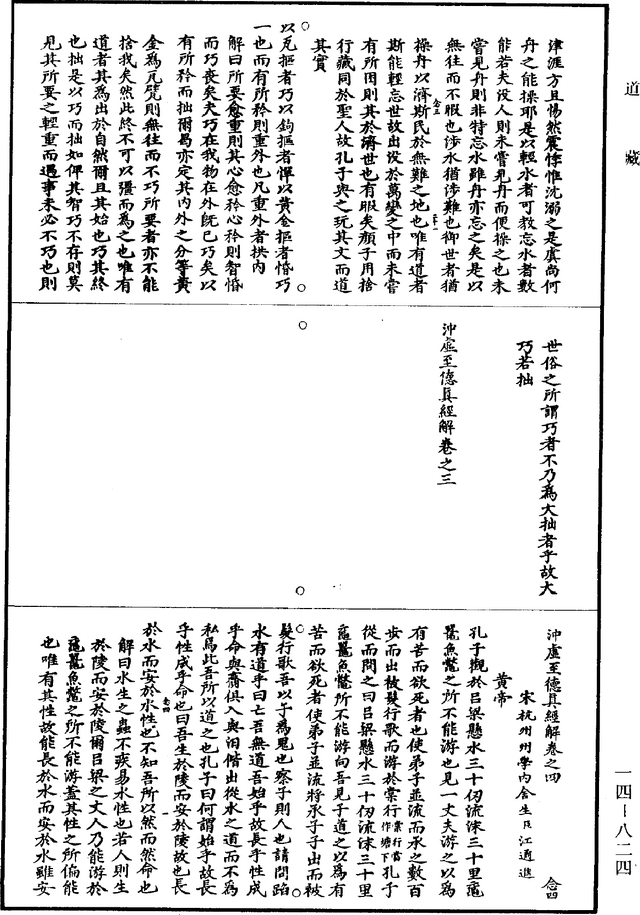 道藏
津涯方且惕然震悸惟沈溺之是虞尚何
舟之能操耶是以輕水者可教忘水者數
能若夫没人則未嘗見舟而便操之也未
嘗見舟則非特忘水雖舟亦忘之矣是以
無往而不暇也涉水猶涉難也御世者猶
操舟以濟斯民於無難之地也唯有道者
斯能輕忘世故出没於萬變之中而未嘗
有所困則其於濟世也有暇矣顏子用捨
行藏同於聖人故孔子與之玩其文而道
其實
以瓦摳者巧以鉤摳者憚以黄金摳者惛巧
一也而有所矜則重外也凡重外者拱内
解曰所要愈重則其心愈矜心矜則智惛
而巧喪矣夫巧在我物在外既已巧矣以
有所矜而拙爾曷亦定其内外之分等黄
金為瓦甓則無往而不巧所要者亦不能
捨我矣然此終不可以彊而為之也唯有
道者其為出於自然爾且其始也巧其終
也拙是以巧而拙如俾其智巧不存則莫
見其所要之輕重而遇事未必不巧也則
世俗之所謂巧者不乃為大拙者乎故大
巧若拙
沖虚至德真經解卷之三
沖虚至德真經解卷之四 念四
宋杭州州學内舍生臣江遹進
黄帝
孔子觀於吕梁懸水三十仞流沫三十里黿
鼉魚鼈之所不能游也見一丈夫游之以為
有苦而欲死者也使弟子並流而承之數百
步而出被髮行歌而游於棠行棠行當作塘下孔子
從而問之曰吕梁懸水三十仞流沫三十里
黿鼉魚鼈所不能游向吾見子道之以為有
苦而欲死者使弟子並流將承子子出而被
髮行歌吾以子為鬼也察子則人也請問蹈
水有道乎曰亡吾無道吾始乎故長乎性成
乎命與齎俱入與汩偕出從水之道而不為
私焉此吾所以道之也孔子曰何謂始乎故長
乎性成乎命也曰吾生於陵而安於陵故也長
於水而安於水性也不知吾所以然而然命也
解曰水生之蟲不疾易水性也若人則生
於陵而安於陵爾吕梁之丈人乃能游於
黿鼉魚鼈之所不能游蓋其性之所偏能
也唯有其性故能長於水而安於水雖安
一四-八二四